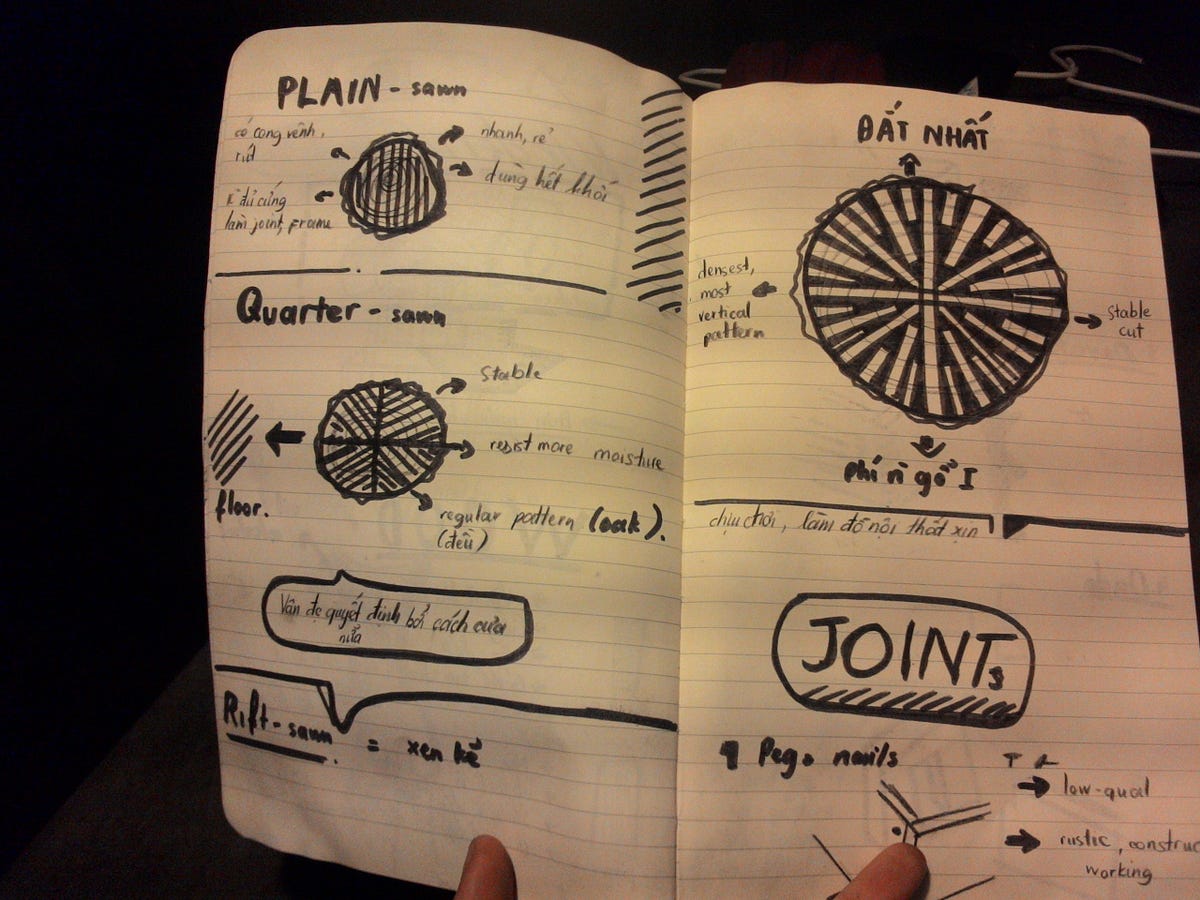 PLAIN - sawn
có cong vênh,
nhanh, rẻ
dùng hết khối
làm joint, frame
Quarter - sawn
Stable
resist more moisture
floor.
regular pattern (oak).
(đều)
Vân đc quyết định bởi cách cưa
nữa
Rift-sawn = xen kẽ
ĐẮT NHẤT
densest,
most
vertical
pattern
Stable
cut
phí n gỗ I
chịu chơi, làm đồ nội thất xịn
JOINTs
Peg, nails
low-qual
rustic, construc
working